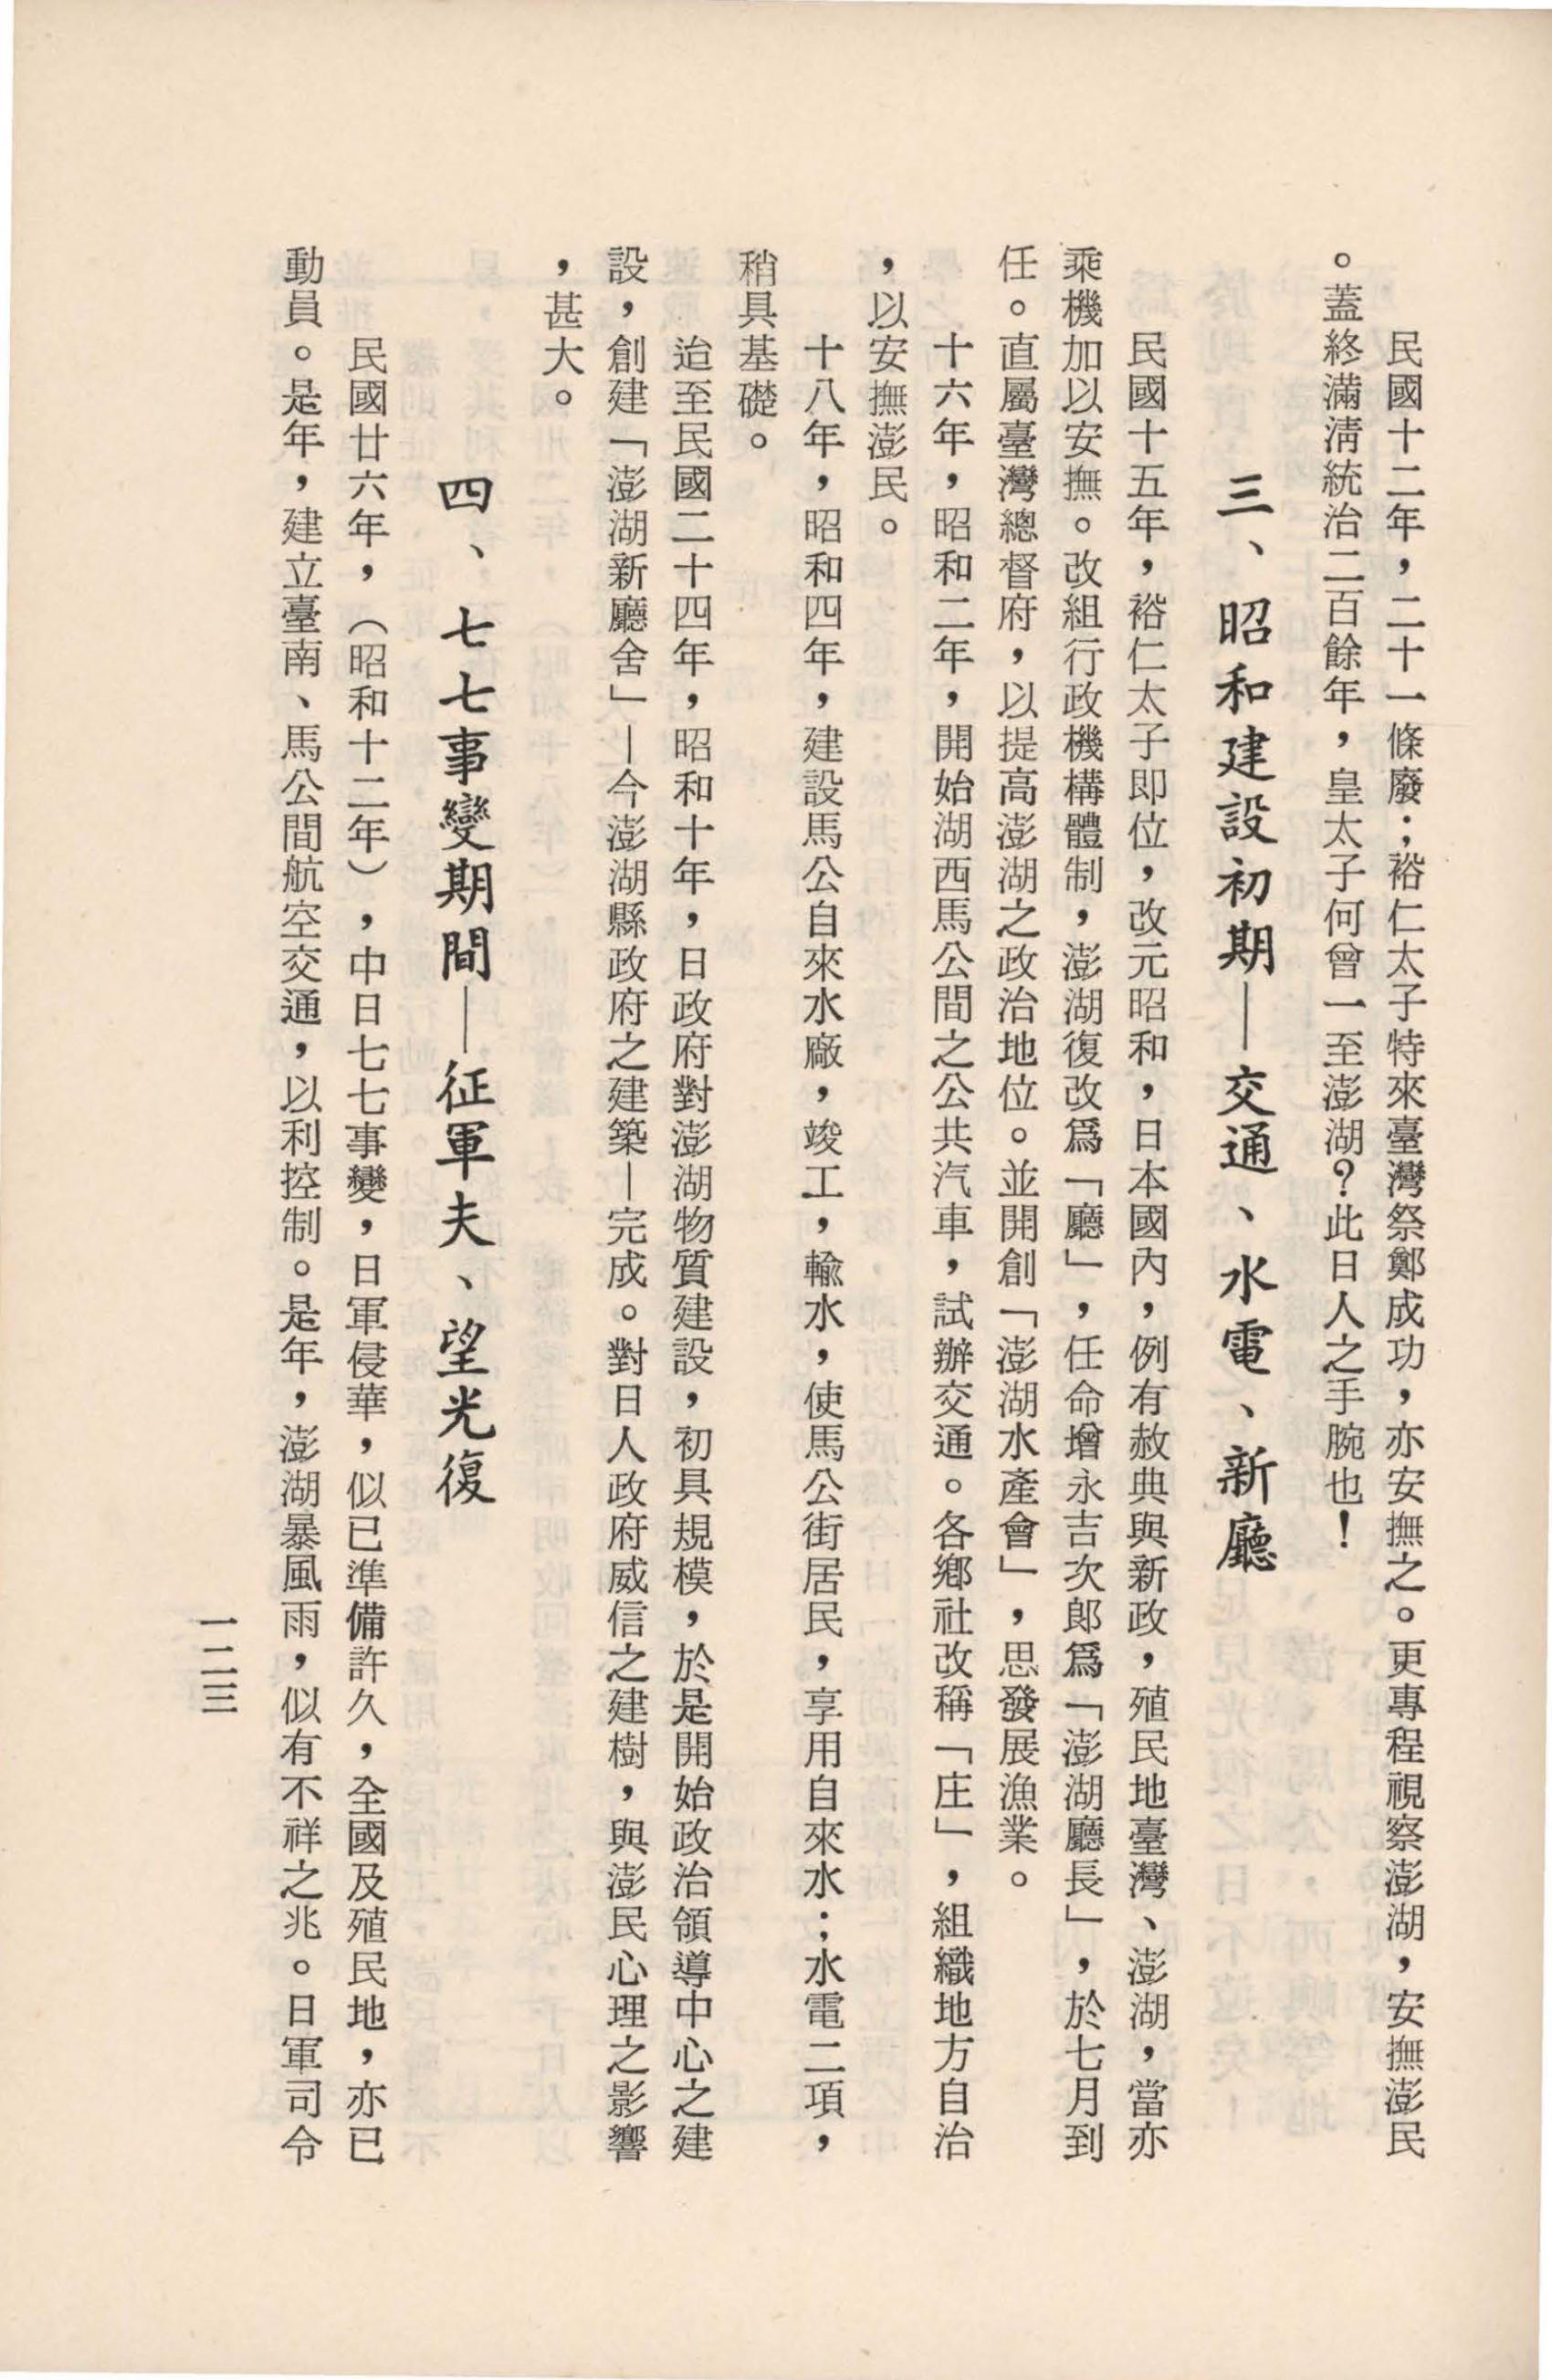 民國十二年，二十一條廢；裕仁太子特來臺灣祭鄭成功，亦安撫之。更專程視察澎湖，安撫澎民
。蓋終滿淸統治二百餘年，皇太子何曾一至澎湖？此日人之手腕也！
三、昭和建設初期—交通、水電、新廳
民國十五年，裕仁太子即位，改元昭和，日本國內，例有赦典與新政，殖民地臺灣、澎湖，當亦
乘機加以安撫。改組行政機構體制，澎湖復改爲「廳」，任命增永吉次郎爲「澎湖廳長」，於七月到
任。直屬臺灣總督府，以提高澎湖之政治地位。並開創「澎湖水產會」，思發展漁業。
十六年，昭和二年，開始湖西馬公間之公共汽車，試辦交通。各鄉社改稱「庄」，組織地方自治
，以安撫澎民。
十八年，昭和四年，建設馬公自來水廠，竣工，輸水，使馬公街居民，享用自來水；水電二項，
稍具基礎。
迨至民國二十四年，昭和十年，日政府對澎湖物質建設，初具規模，於是開始政治領導中心之建
設，創建「澎湖新廳舍」—今澎湖縣政府之建築—完成。對日人政府威信之建樹，與澎民心理之影響
，甚大。
四、七七事變期間—征軍夫、望光復
民國廿六年，（昭和十二年），中日七七事變，日軍侵華，似已準備許久，全國及殖民地，亦已
動員。是年，建立臺南、馬公間航空交通，以利控制。是年，澎湖暴風雨，似有不祥之兆。日軍司令
一二三